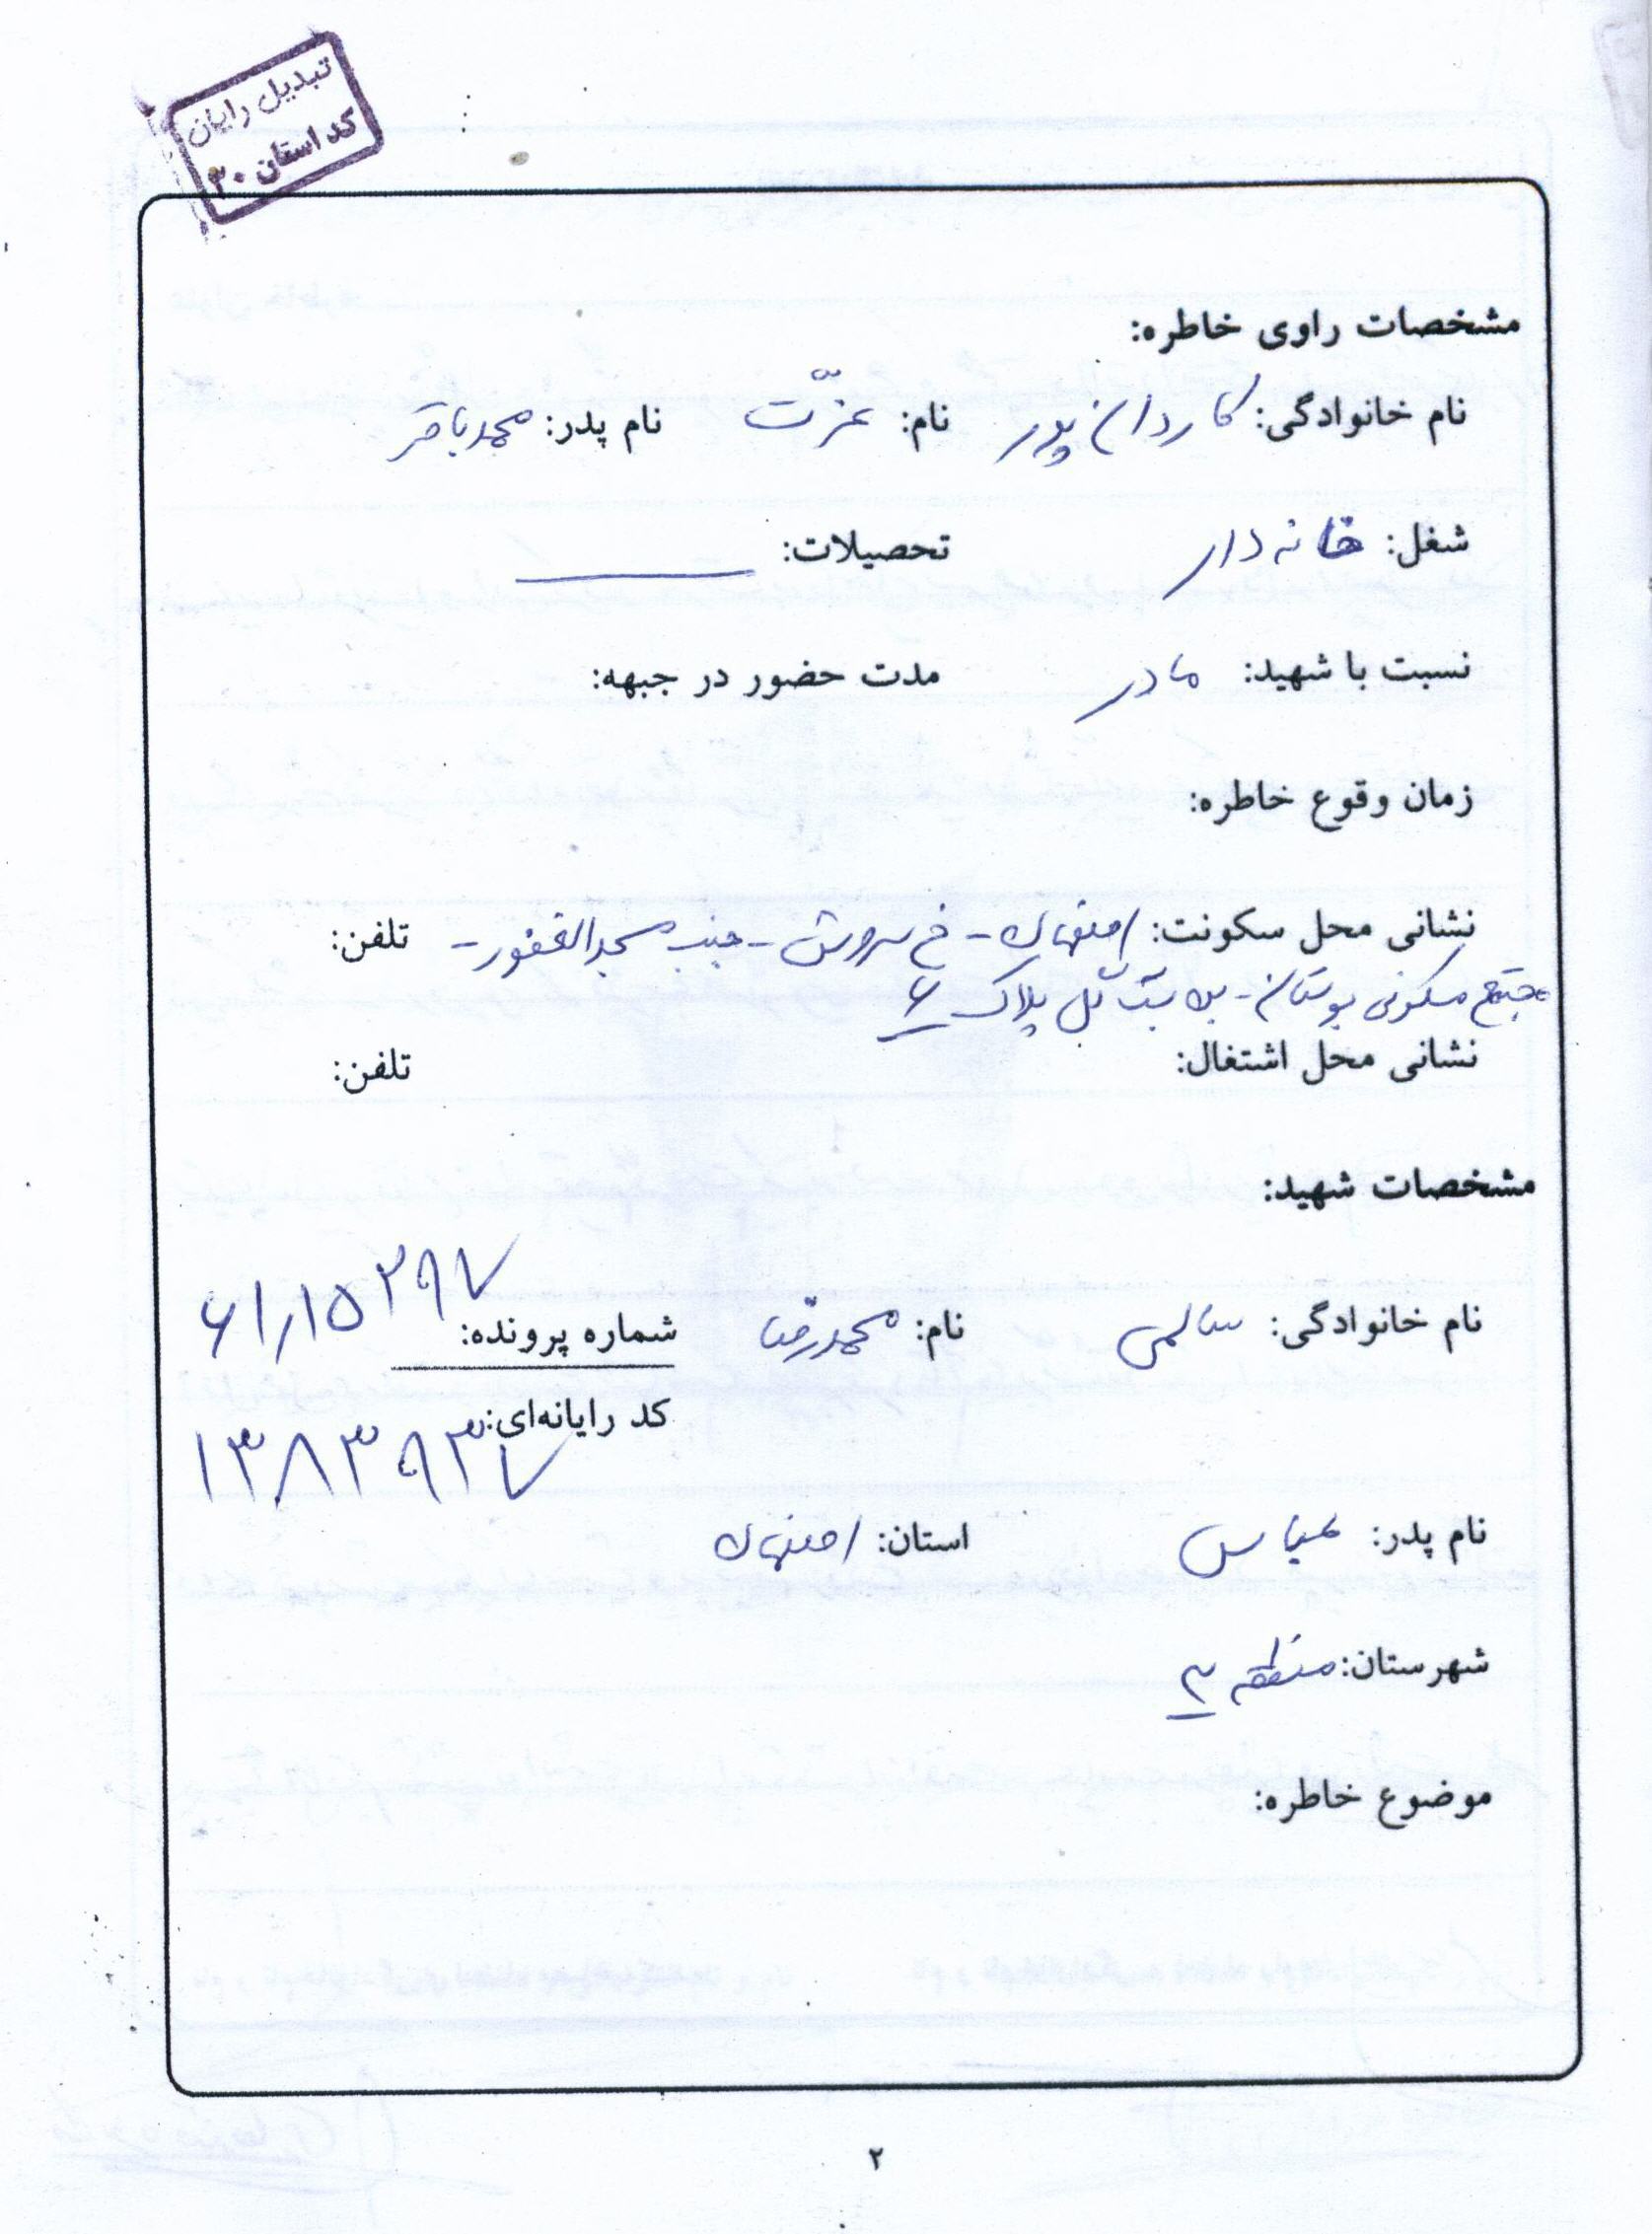 تبدیل رایان
کد استان ۳۰
مشخصات راوی خاطره:
نام خانوادگی: کاردان پور نام: عزّت نام پدر: محمدباقر
شغل: خانه دار تحصیلات:
نسبت با شهید: مادر مدت حضور در جبهه:
زمان وقوع خاطره:
نشانی محل سکونت: اصفهان - خ سروش - جنب مسجد الغفور - تلفن:
مجتمع مسکونی بوستان - پلاک ۶
نشانی محل اشتغال: تلفن:
مشخصات شهید:
نام خانوادگی: سالمی نام: محمدرضا شماره پرونده: ۶۱/۱۵۲۹۷
کد رایانه‌ای: ۱۳۸۳۹۳۷
نام پدر: عباس استان: اصفهان
شهرستان: منطقه ۳
موضوع خاطره:
۲